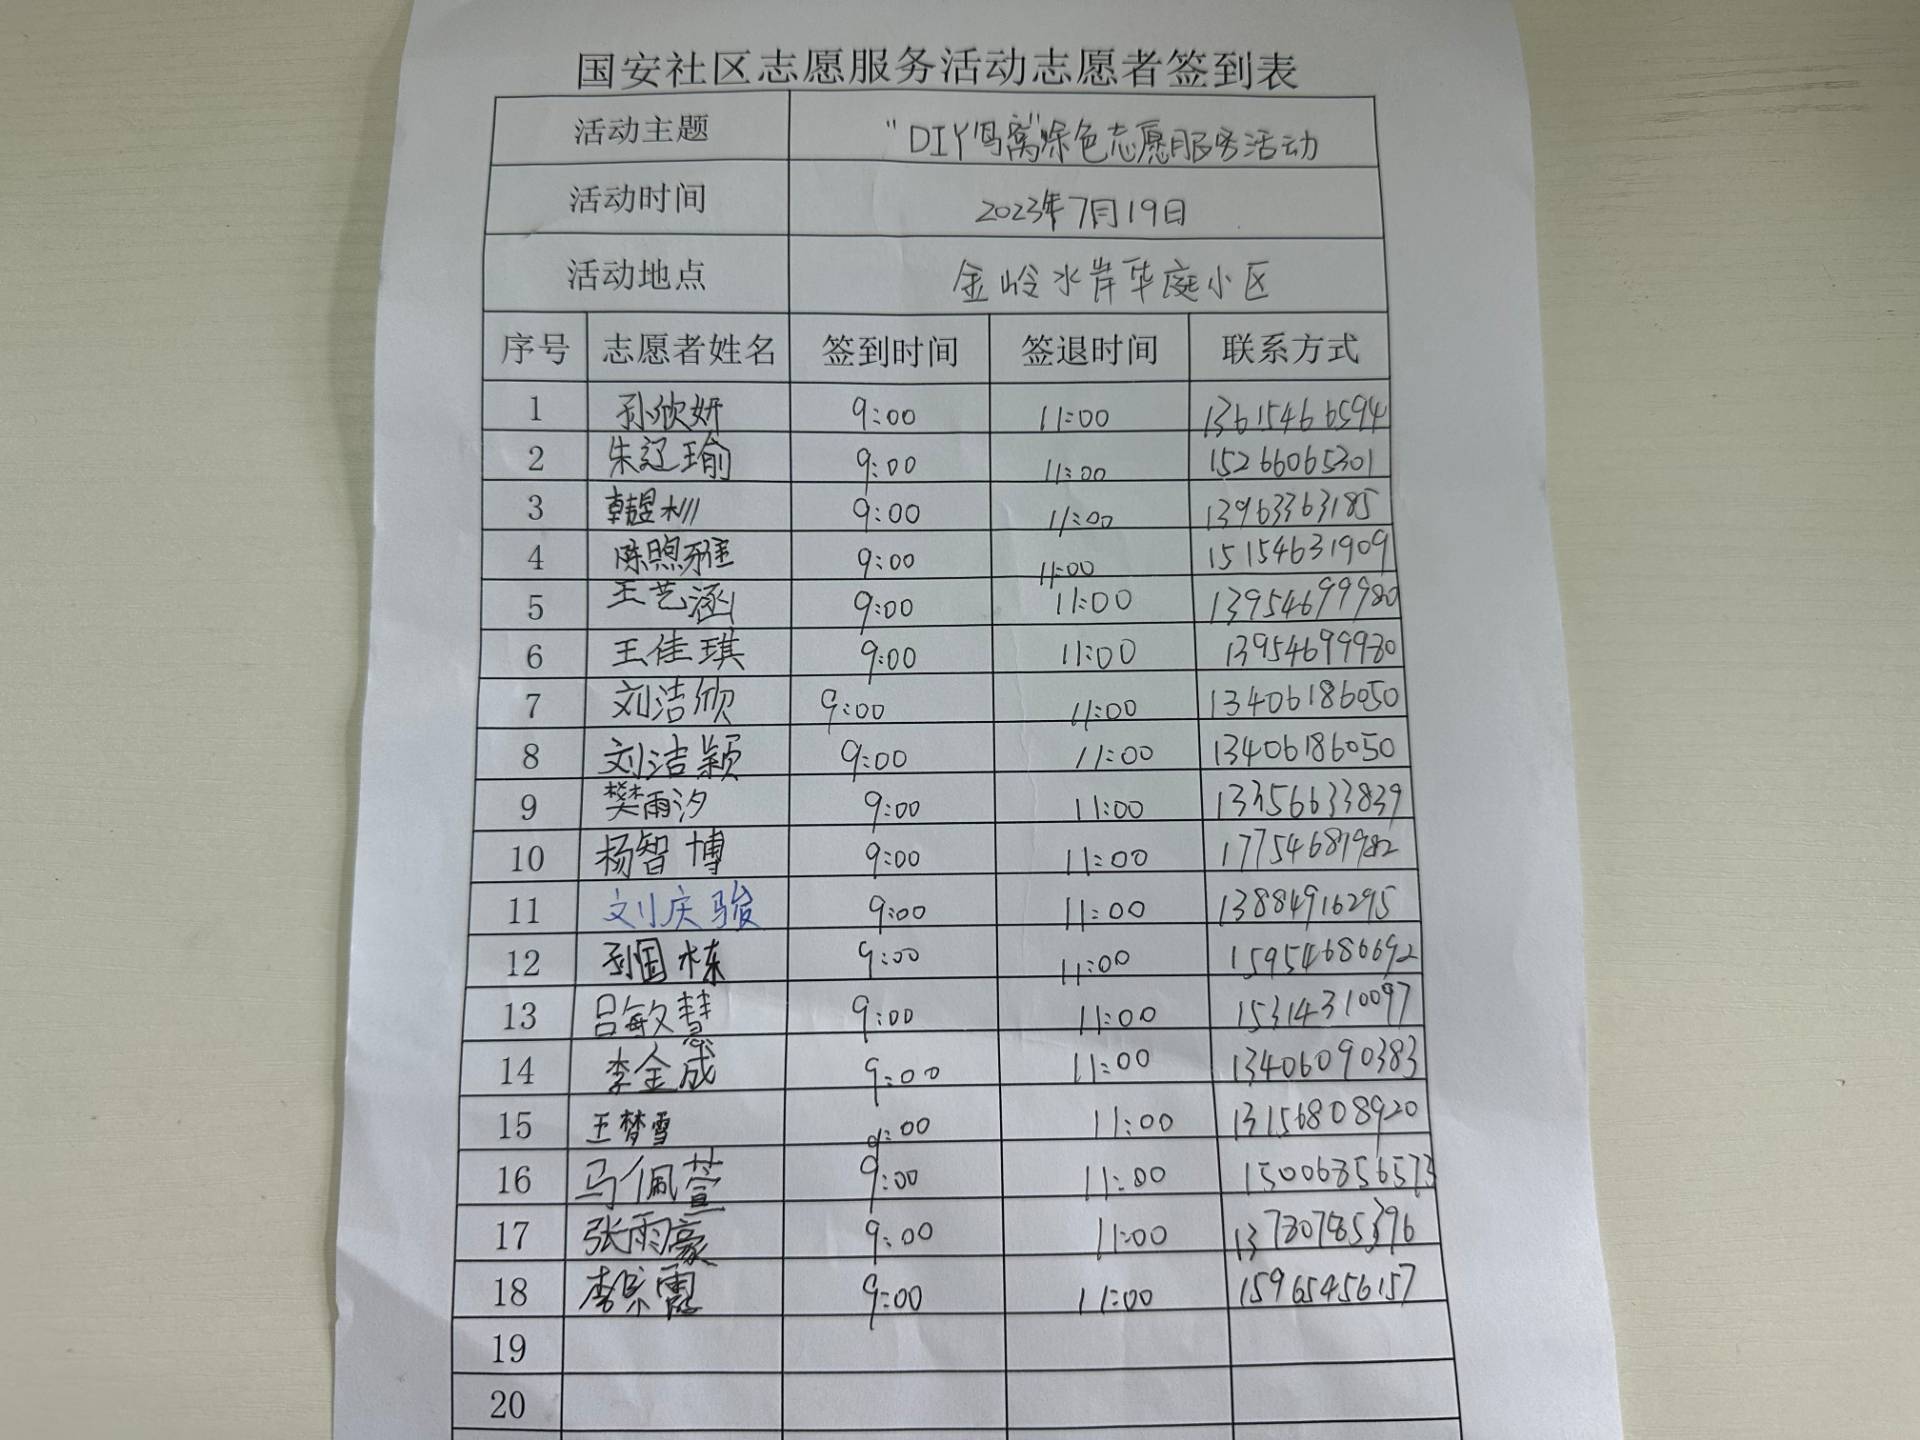 国安社区志愿服务活动志愿者签到表
活动主题 "DIY鸟窝"涂色志愿服务活动
活动时间 2023年7月19日
活动地点 金岭水岸华庭小区
序号 志愿者姓名 签到时间 签退时间 联系方式
1 孙欣妍 9:00 11:00 13615466594
2 朱辽瑜 9:00 11:00 15266065301
3 韩煜 9:00 11:00 13963363185
4 陈煦雅 9:00 11:00 15154631909
5 王艺涵 9:00 11:00 13954699980
6 王佳琪 9:00 11:00 13954699980
7 刘洁欣 9:00 11:00 13406186050
8 刘洁颖 9:00 11:00 13406186050
9 樊雨汐 9:00 11:00 13356633839
10 杨智博 9:00 11:00 17754687982
11 刘庆骏 9:00 11:00 13884916295
12 孙国栋 9:00 11:00 15954686692
13 吕敏慧 9:00 11:00 15314310097
14 李金成 9:00 11:00 13406090383
15 王梦雪 9:00 11:00 13156808920
16 马佩萱 9:00 11:00 15006856573
17 张雨豪 9:00 11:00 13780785396
18 李霞 9:00 11:00 15965456157
19
20